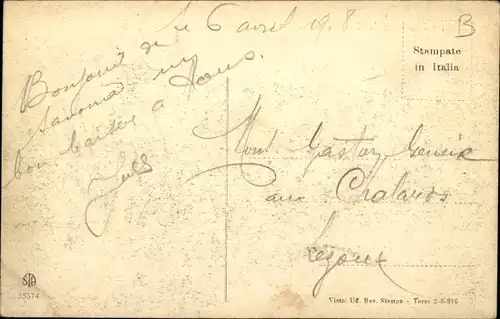 Le 6 avril 1918
B
Stampate
in Italia
Bonjour de
un
bon baiser a tous.
Jules
Gaston
aux Chalards
Lezoux
STA
35374
Visto: Uff. Rev. Stampa - Terni 2-8-916